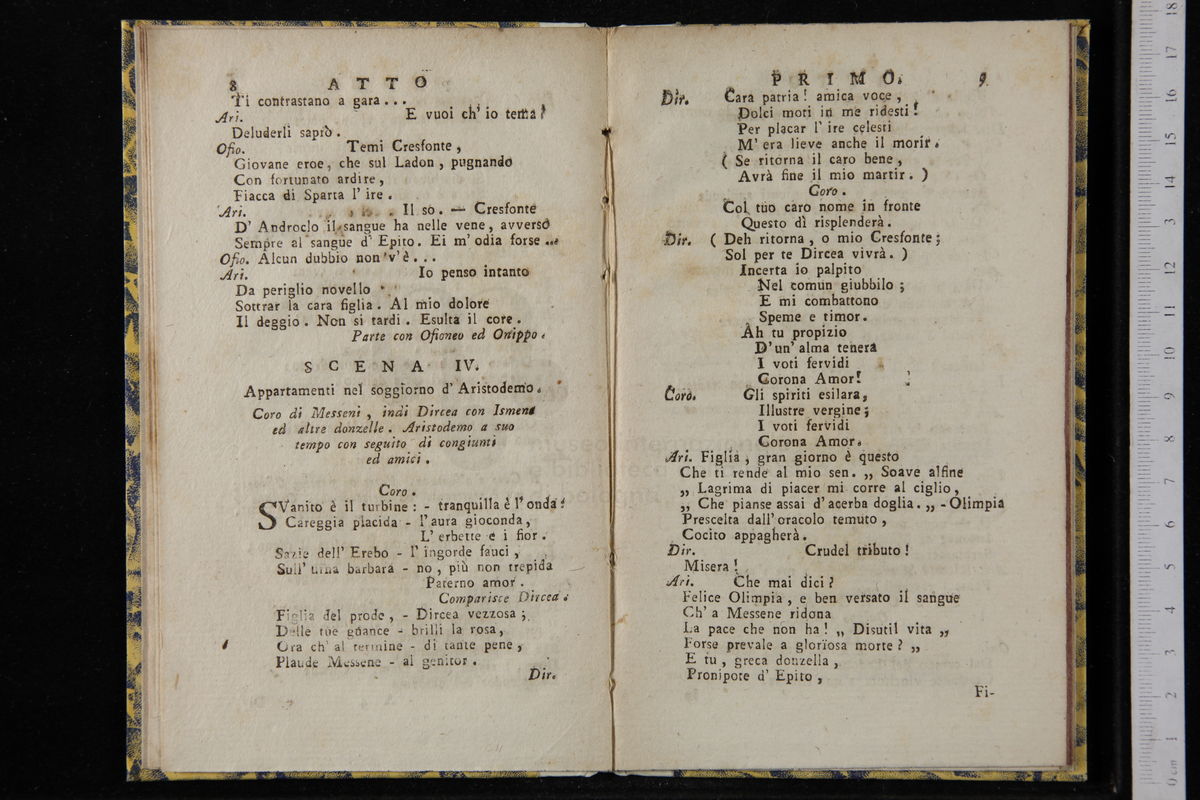 8 ATTO
Ti contrastano a gara...
Ari. E vuoi ch' io tema?
Deluderli saprò.
Ofio. Temi Cresfonte,
Giovane eroe, che sul Ladon, pugnando
Con fortunato ardire,
Fiacca di Sparta l' ire.
Ari. Il so. — Cresfonte
D' Androclo il sangue ha nelle vene, avverso
Sempre al sangue d' Epito. Ei m' odia forse...
Ofio. Alcun dubbio non v' è...
Ari. Io penso intanto
Da periglio novello
Sottrar la cara figlia. Al mio dolore
Il deggio. Non si tardi. Esulta il core.
Parte con Ofioneo ed Onippo.
SCENA IV.
Appartamenti nel soggiorno d' Aristodemo.
Coro di Messeni, indi Dircea con Ismene
ed altre donzelle. Aristodemo a suo
tempo con seguito di congiunti
ed amici.
Coro.
SVanito è il turbine: - tranquilla è l' onda:
Careggia placida - l' aura gioconda,
L' erbette e i fior.
Sazie dell' Erebo - l' ingorde fauci,
Sull' urna barbara - no, più non trepida
Paterno amor.
Comparisce Dircea.
Figlia del prode, - Dircea vezzosa;
Delle tue guance - brilli la rosa,
Ora ch' al termine - di tante pene,
Plaude Messene - al genitor.
Dir.
PRIMO. 9
Dir. Cara patria! amica voce,
Dolci moti in me ridesti!
Per placar l' ire celesti
M' era lieve anche il morir.
( Se ritorna il caro bene,
Avrà fine il mio martir. )
Coro.
Col tuo caro nome in fronte
Questo dì risplenderà.
Dir. ( Deh ritorna, o mio Cresfonte;
Sol per te Dircea vivrà. )
Incerta io palpito
Nel comun giubbilo;
E mi combattono
Speme e timor.
Ah tu propizio
D'un' alma tenera
I voti fervidi
Corona Amor!
Coro. Gli spiriti esilara,
Illustre vergine;
I voti fervidi
Corona Amor.
Ari. Figlia, gran giorno è questo
Che ti rende al mio sen. „ Soave alfine
„ Lagrima di piacer mi corre al ciglio,
„ Che pianse assai d' acerba doglia. „ - Olimpia
Prescelta dall' oracolo temuto,
Cocito appagherà.
Dir. Crudel tributo!
Misera!
Ari. Che mai dici?
Felice Olimpia, e ben versato il sangue
Ch' a Messene ridona
La pace che non ha! „ Disutil vita „
Forse prevale a gloriosa morte? „
E tu, greca donzella,
Pronipote d' Epito,
Fi-